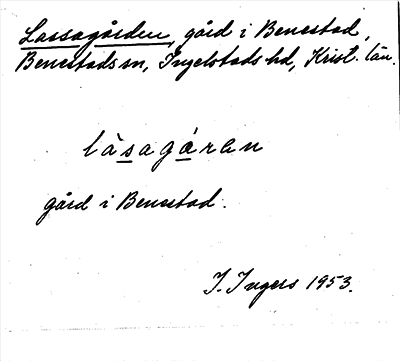 Lassagården, gård i Benestad,
Benestads sn, Ingelstads hd, Krist. län.
làsagáran
gård i Benestad.
I. Ingers 1953.